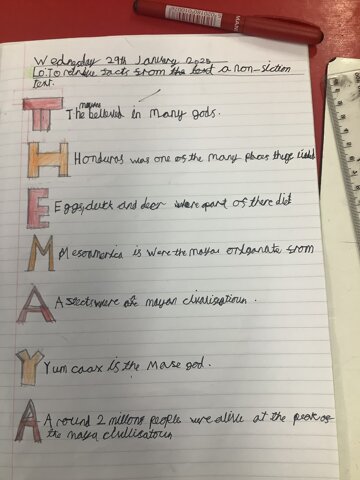 Wednesday 29th January 2025
Lo: To retrieve facts from the text a non-fiction
text.
The mayans believed in many gods.
Honduras was one of the many places they lived
Eggs, duck and deer were part of there diet
Mesoamerica is were the mayas origanate from
Aztects were ate mayan civalisatioun.
Yum caax is the Maze god.
Around 2 millons people were alive at the peak of
the maya civilisatioun